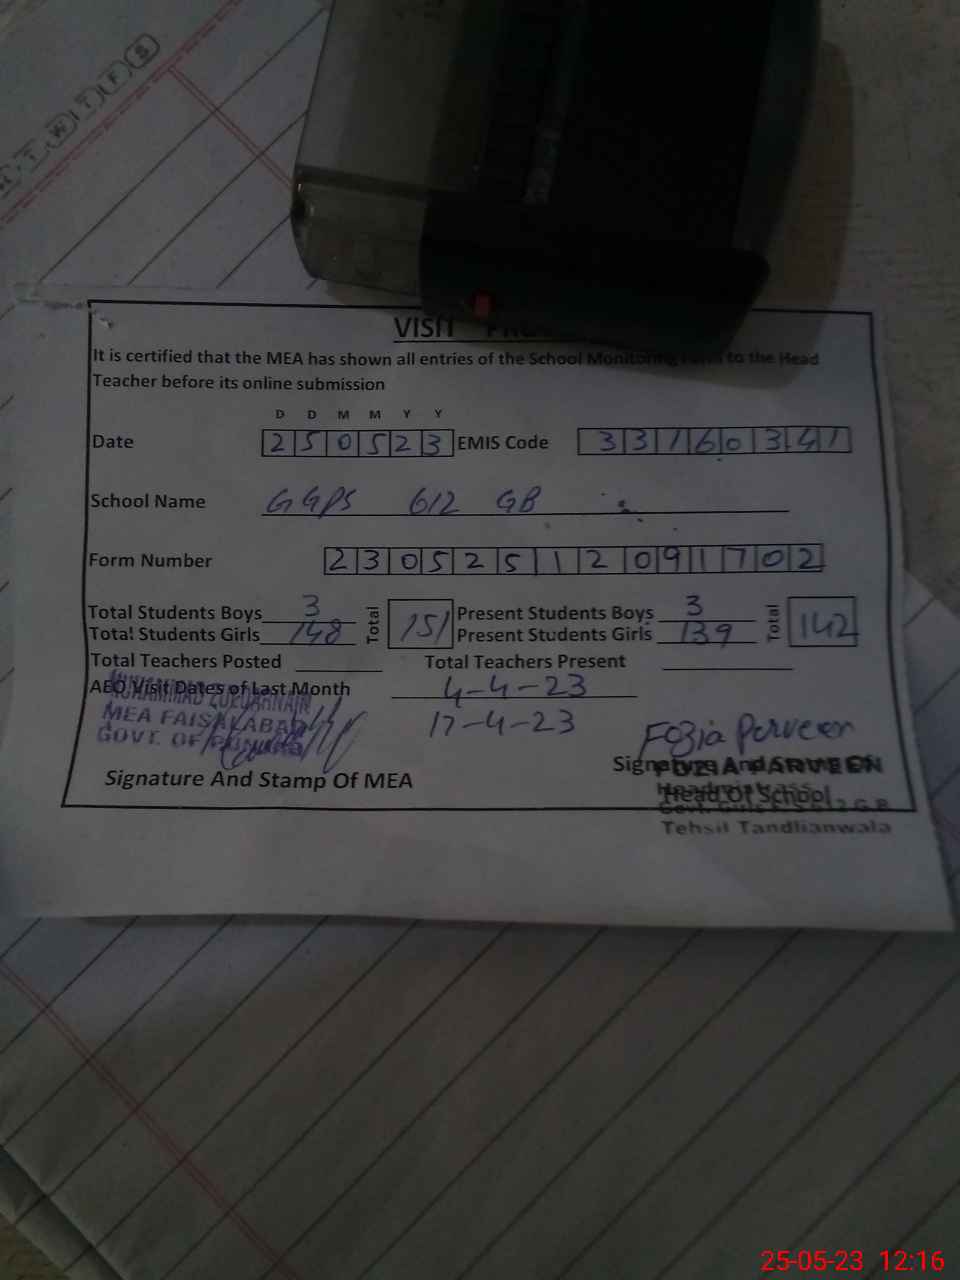 T W T F S
VISIT
It is certified that the MEA has shown all entries of the School Monitoring Form to the Head
Teacher before its online submission
D D M M Y Y
Date 250523 EMIS Code 33160341
School Name GGPS 612 GB
Form Number 23052512091702
Total Students Boys 3 Total 151 Present Students Boys 3 Total 142
Total Students Girls 148 Present Students Girls 139
Total Teachers Posted Total Teachers Present
AEO Visit Dates of Last Month 4-4-23
17-4-23
MUHAMMAD ZULQARNAIN
MEA FAISALABAD
GOVT. OF PUNJAB
Fozia Perveen
Signature And Stamp Of MEA
Signature And Stamp Of
Head Of School
FOZIA PARVEEN
Headmistress
Govt. Girls P/S 612 G.B
Tehsil Tandlianwala
25-05-23 12:16